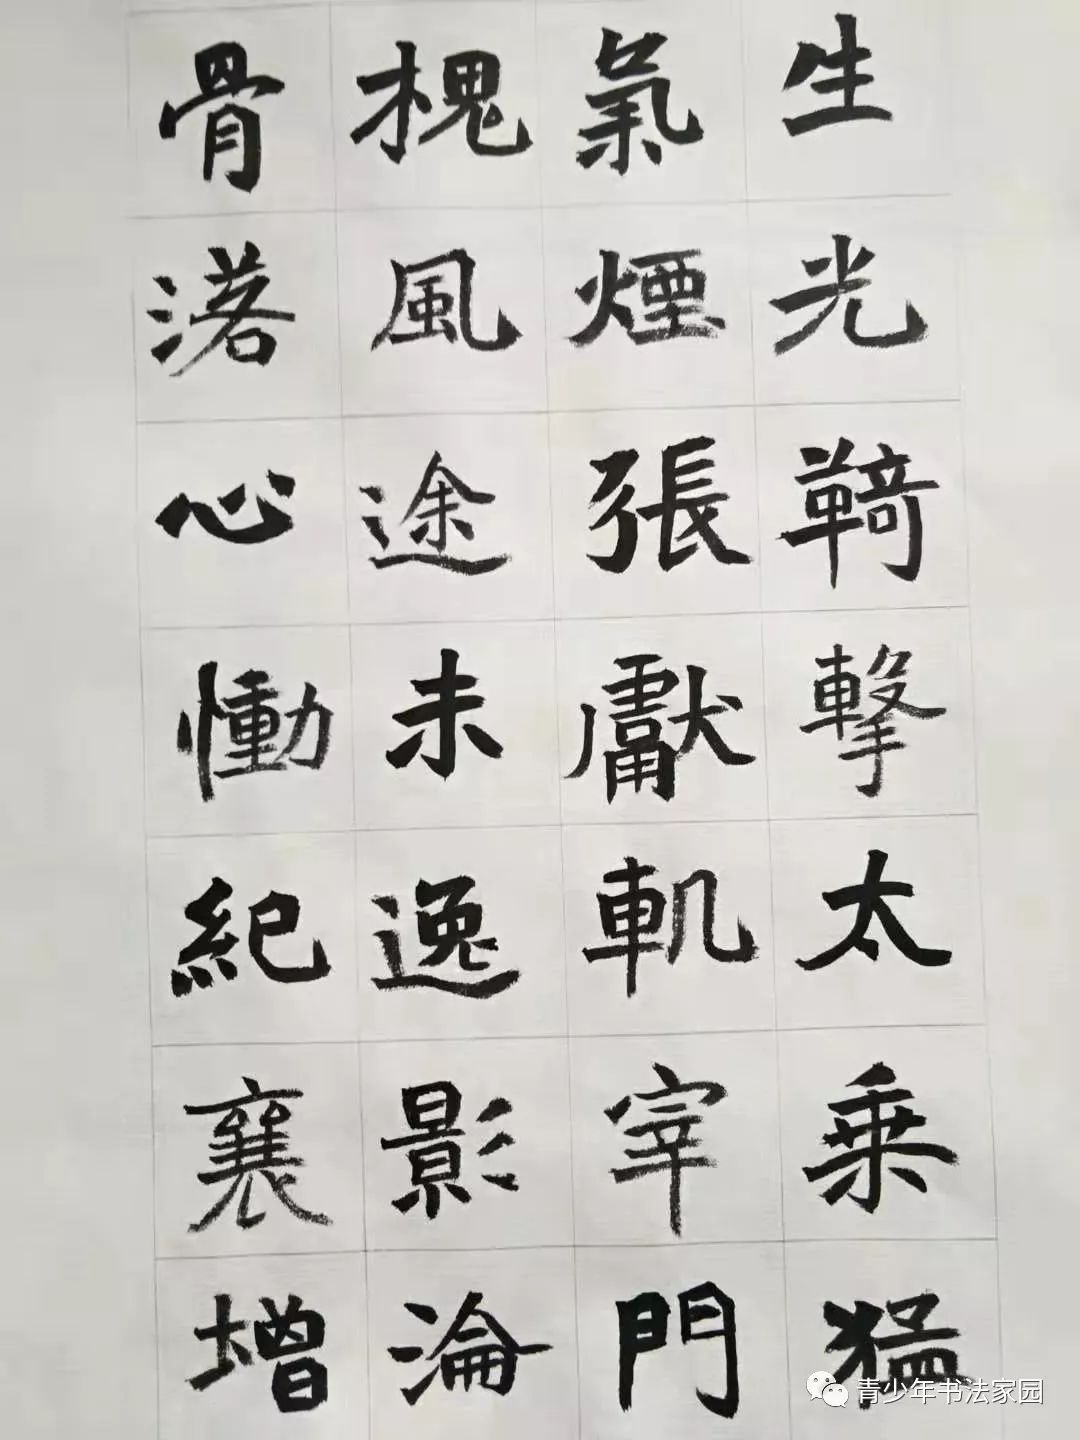 生光擊太乘猛
氣煙張獻軌宰門
槐風途未逸影淪
骨落心慟紀襄增
青少年书法家园